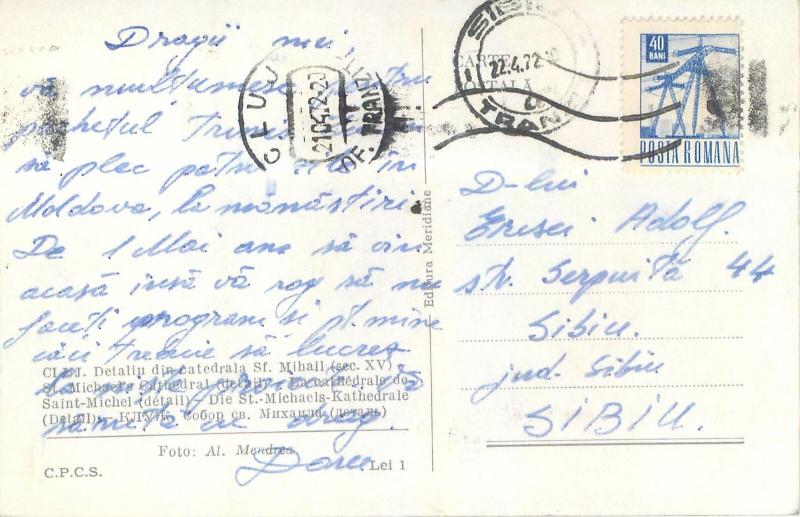 Dragii mei,
vă mulțumesc
pachetul
să plec patru zile în
Moldova, la mănăstiri.
De 1 Mai am să vin
acasă însă vă rog să nu
faceți program și pt. mine
căci trebuie să lucrez
la
cu drag.
Doru
CLUJ. Detaliu din catedrala Sf. Mihail (sec. XV)
St. Michael's Cathedral (detail) – La cathédrale de
Saint-Michel (détail) – Die St.-Michaels-Kathedrale
(Detail) – КЛУЖ. Собор св. Михаила (деталь)
Foto: Al. Mendrea
C.P.C.S.
Lei 1
Editura Meridiane
CLUJ
21.04.72-20
OF. TRANZ
CARTE
POȘTALĂ
SIBIU
22.4.72
TRANZ
40
BANI
POSTA ROMANA
D-lui
Adolf.
str. Serpuita 44
Sibiu.
jud. Sibiu
SIBIU.